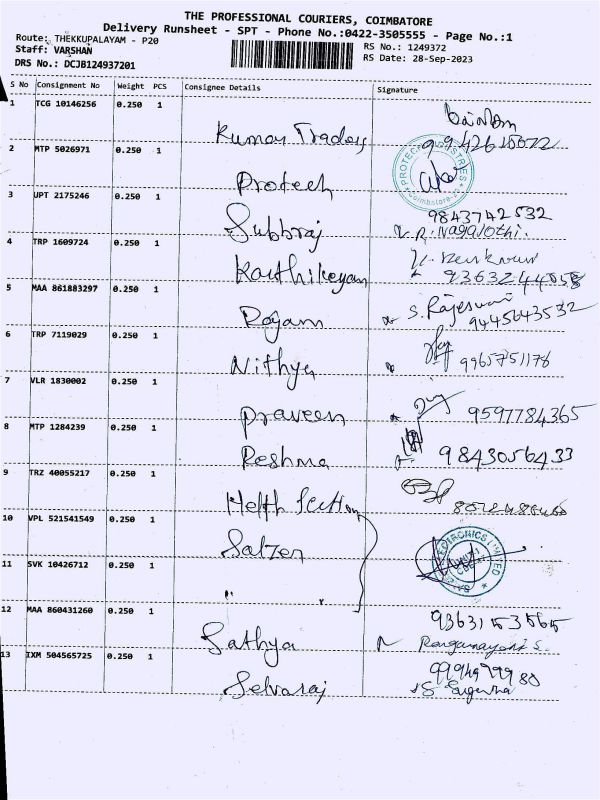 THE PROFESSIONAL COURIERS, COIMBATORE
Delivery Runsheet - SPT - Phone No.:0422-3505555 - Page No.:1
Route: THEKKUPALAYAM - P20
RS No.: 1249372
Staff: VARSHAN
RS Date: 28-Sep-2023
DRS No.: DCJB124937201
S No Consignment No Weight PCS Consignee Details Signature
1 TCG 10146256 0.250 1
Kumar Traders
2 MTP 5026971 0.250 1
Protech
3 UPT 2175246 0.250 1
9843742532
Subbraj R. Nagajothi.
4 TRP 1609724 0.250 1
Karthikeyan
5 MAA 861883297 0.250 1
S. Rajeswari
Rajam 9445643532
6 TRP 7119029 0.250 1
Nithya 9965751178
7 VLR 1830002 0.250 1
Praveen 9597784365
8 MTP 1284239 0.250 1
Reshma 9843056433
9 TRZ 40055217 0.250 1
Helth Section
10 VPL 521541549 0.250 1
Salzer
11 SVK 10426712 0.250 1
"
12 MAA 860431260 0.250 1
9363153565
Sathya
13 IXM 504565725 0.250 1
Selvaraj